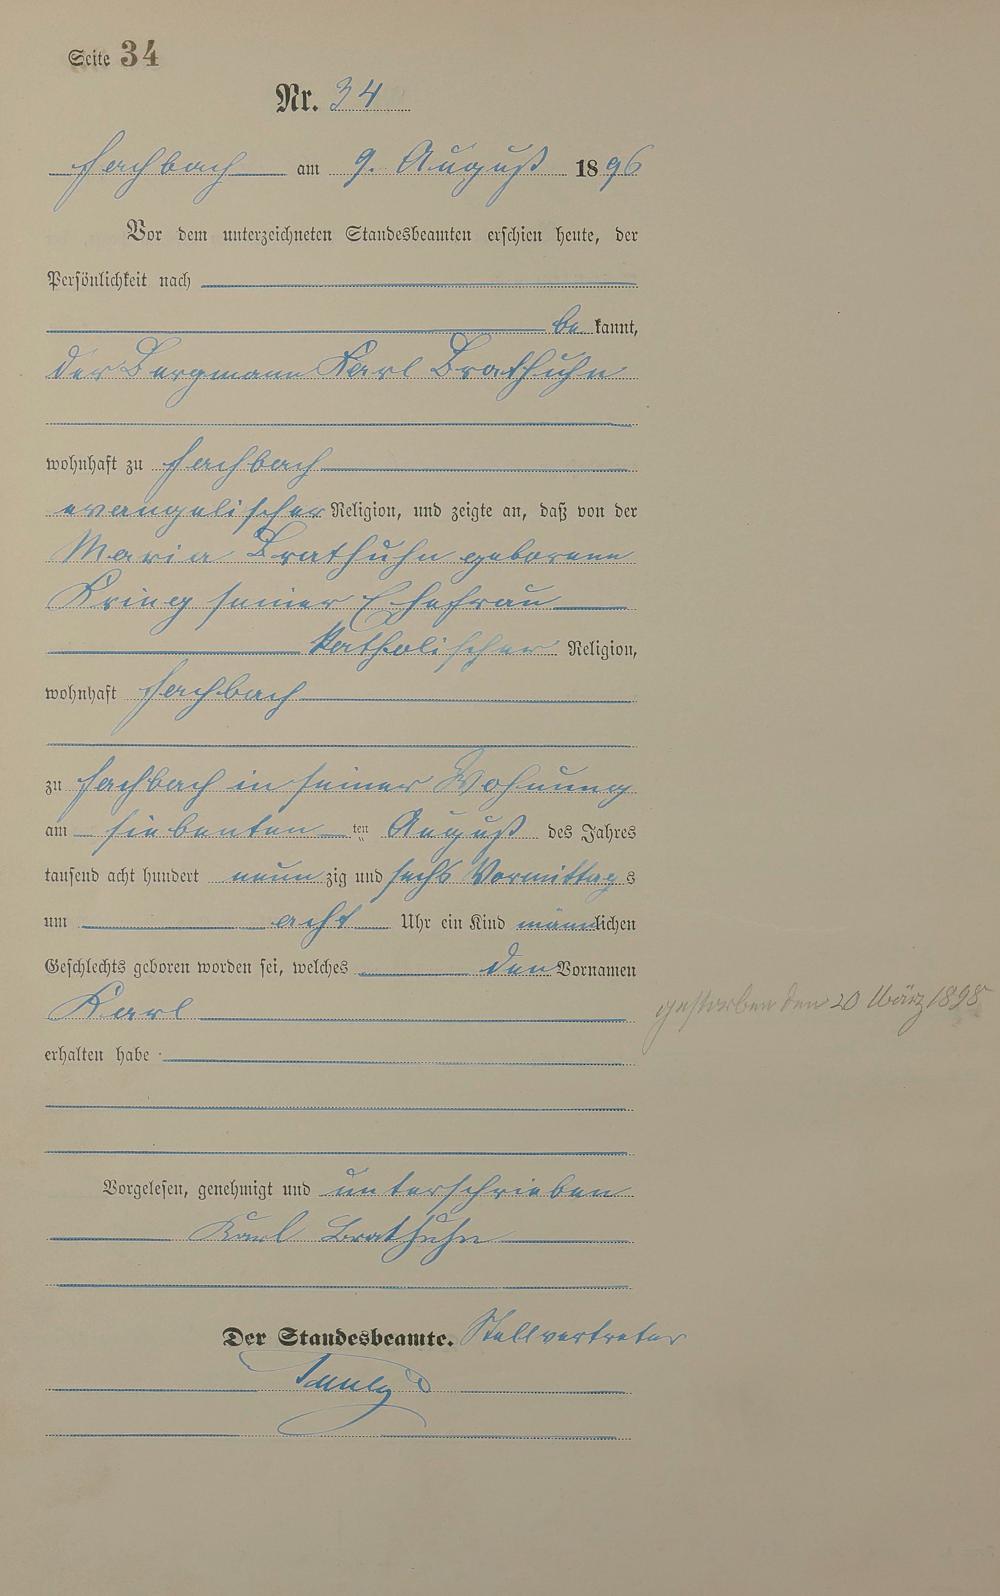 Seite 34
Nr. 34
Fachbach am 9. August 1896
Vor dem unterzeichneten Standesbeamten erschien heute, der
Persönlichkeit nach
be kannt,
der Bergmann Karl Brathuhn
wohnhaft zu Fachbach
evangelischer Religion, und zeigte an, daß von der
Maria Brathuhn geborene
Kring seiner Ehefrau
katholischer Religion,
wohnhaft Fachbach
zu Fachbach in seiner Wohnung
am siebenten ten August des Jahres
tausend acht hundert neun zig und sechs Vormittags
um acht Uhr ein Kind männlichen
Geschlechts geboren worden sei, welches den Vornamen
Karl
gestorben den 20 März 1898
erhalten habe
Vorgelesen, genehmigt und unterschrieben
Karl Brathuhn
Der Standesbeamte. Stellvertreter